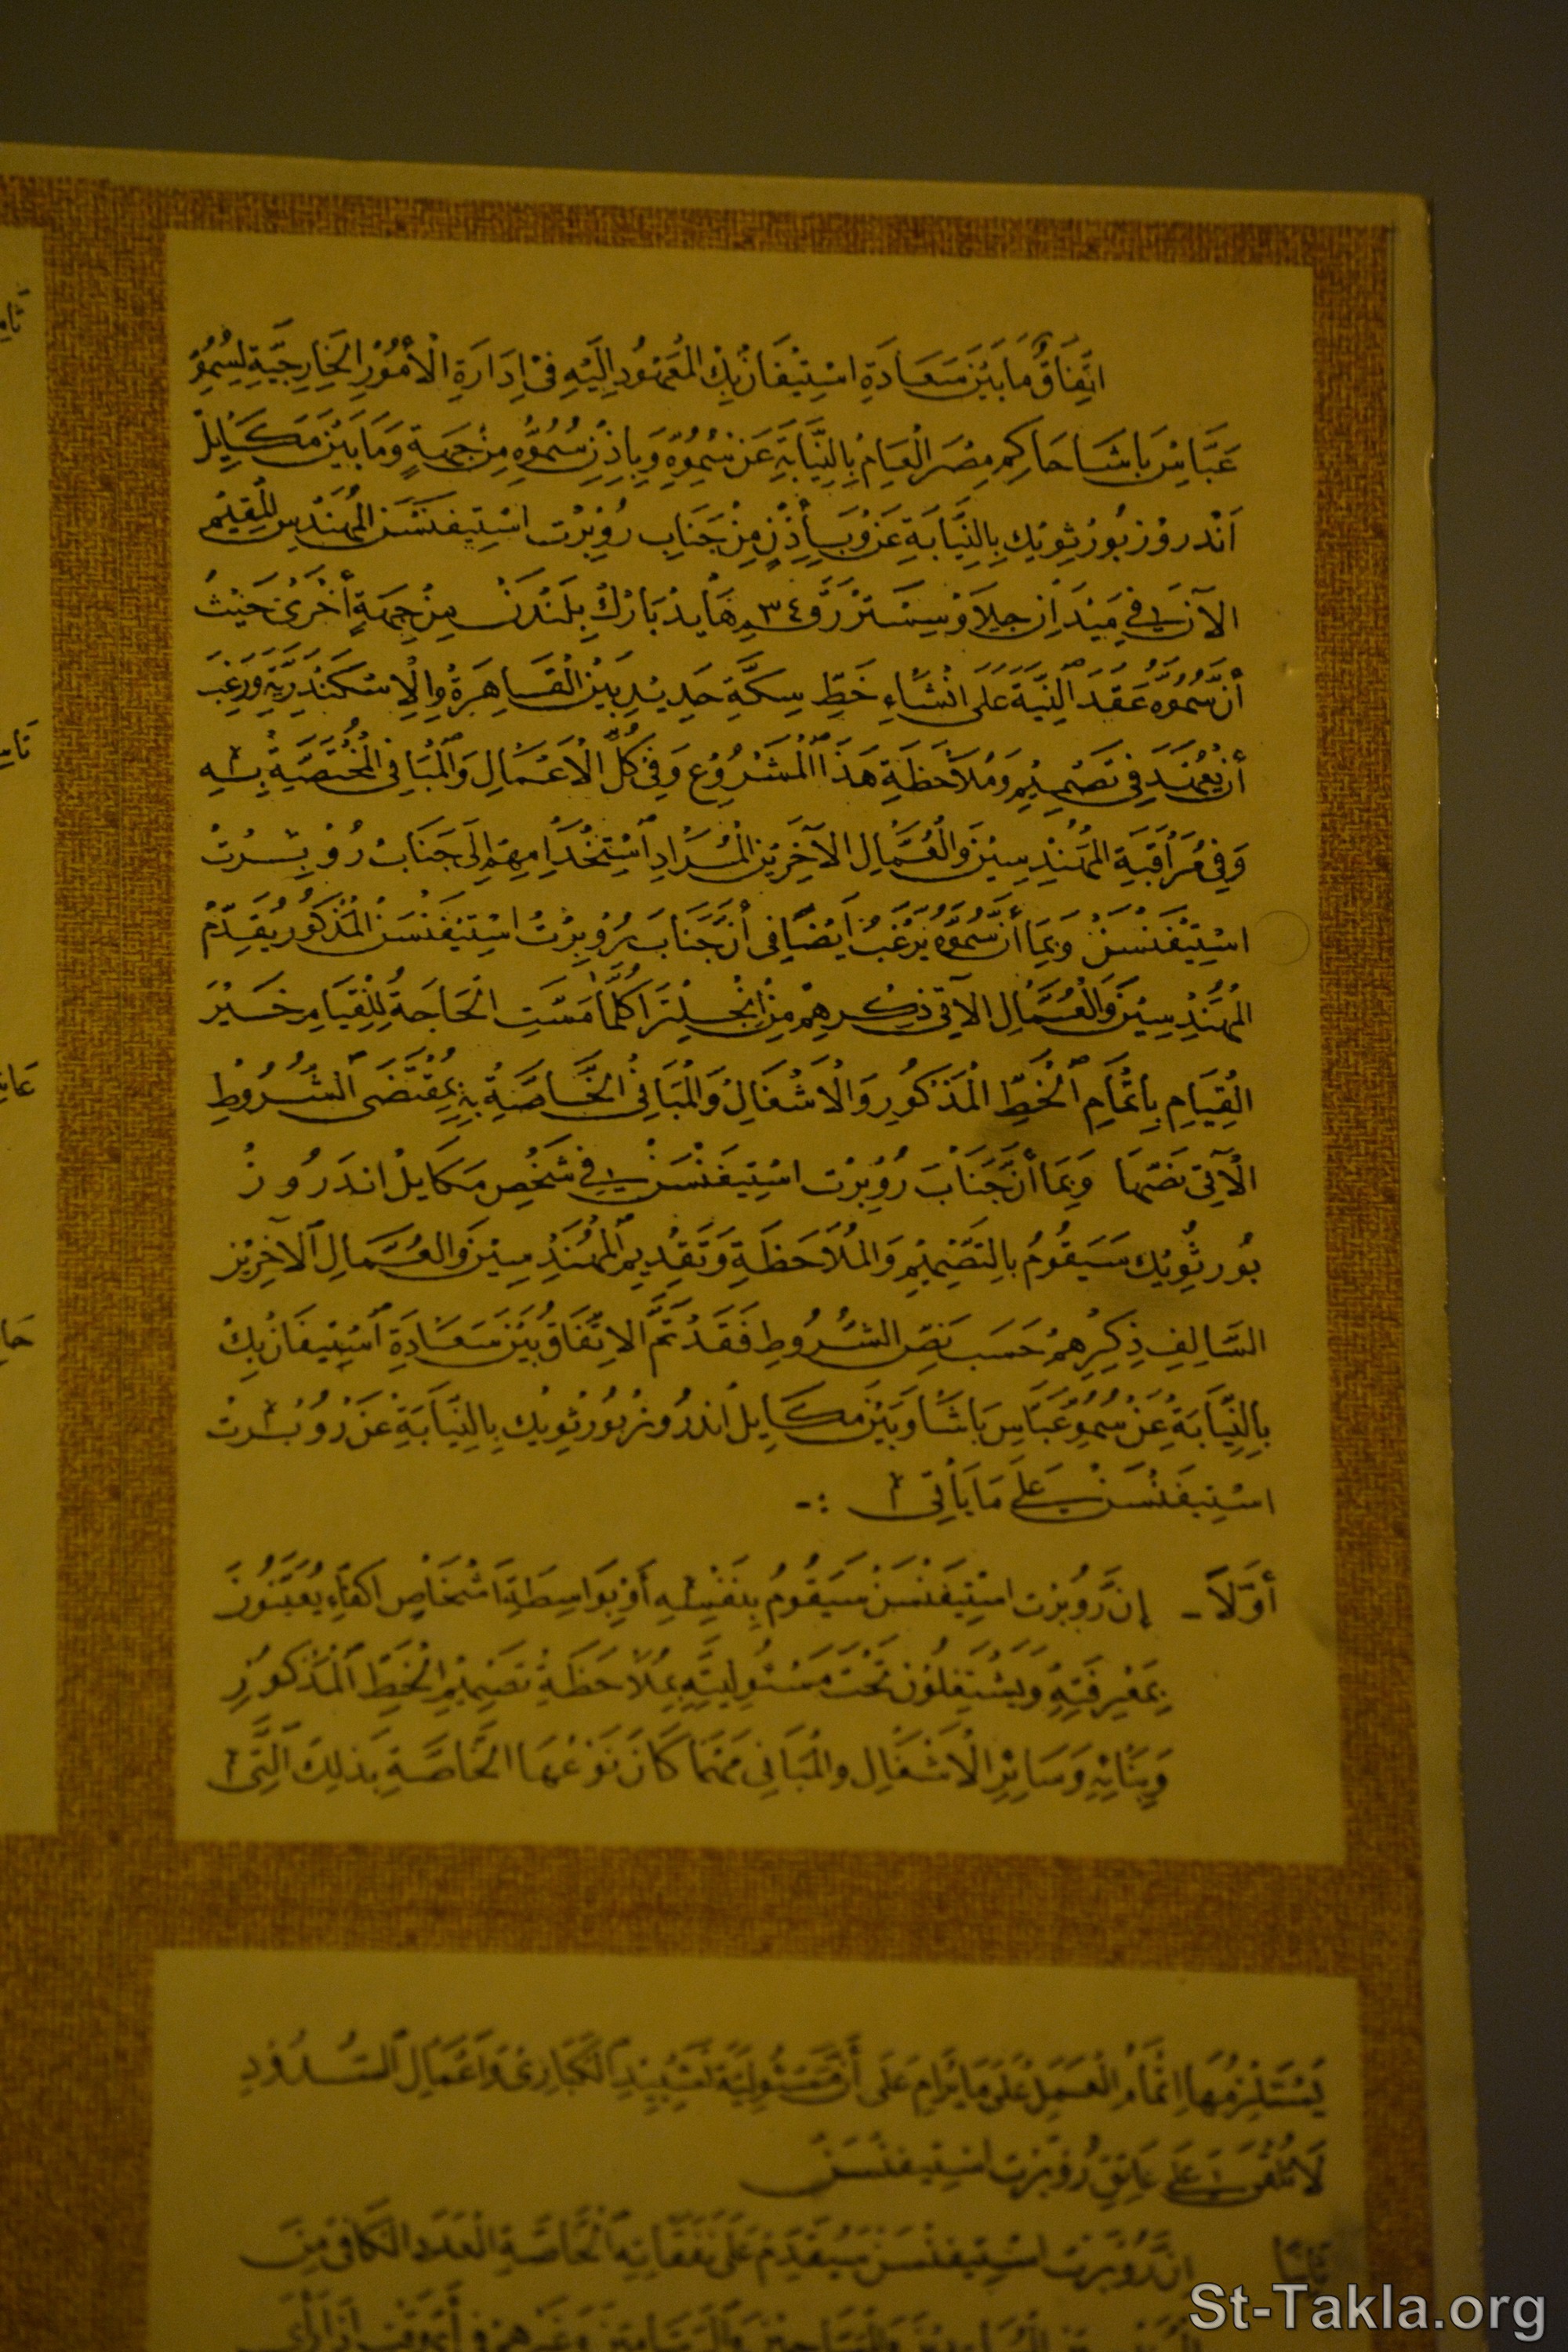 اتِّفَاقٌ مَا بَيْنَ سَعَادَةِ اسْتِيْفَانْ بِكْ الْمَعْهُودِ إِلَيْهِ فِيْ إِدَارَةِ الْأُمُوْرِ الْخَارِجِيَّةِ لِسُمُوِّ
عَبَّاسْ بَاشَا حَاكِمِ مِصْرَ الْعَامْ بِالنِّيَابَةِ عَنْ سُمُوِّهِ وَبِإِذْنِ سُمُوِّهِ مِنْ جِهَةٍ وَمَا بَيْنَ مَكَايِلْ
أَنْدرُوْز بُورْثِوِيك بِالنِّيَابَةِ عَنْ وَبِإِذْنٍ مِنْ جَنَابِ رُوْبَرْت اسْتِيفنْسَنْ الْمُهَنْدِسِ الْمُقِيْمِ
الآنَ فِي مَيْدَانِ جِلَاوْسِسْتَرْ رَقَم ٣٤ هَايدْ بَارْكْ بِلَنْدَنْ مِنْ جِهَةٍ أُخْرَى حَيْثُ
أَنَّ سُمُوَّهُ عَقَدَ النِّيَّةَ عَلَى انْشَاءِ خَطِّ سِكَّةِ حَدِيْدٍ بَيْنَ الْقَاهِرَةِ وَالْإِسْكَنْدَرِيَّةِ وَرَغِبَ
أَنْ يَعْهَدَ فِي تَصْمِيْمِ وَمُلَاحَظَةِ هَذَا الْمَشْرُوْعِ وَفِي كُلِّ الْأَعْمَالِ وَالْمَبَانِي الْمُخْتَصَّةِ بِهِ
وَفِي مُرَاقَبَةِ الْمُهَنْدِسِيْنَ وَالْعُمَّالِ الآخَرِيْنَ الْمُرَادِ اسْتِخْدَامِهِمْ إِلَى جَنَابْ رُوْبِرْتْ
اسْتِيْفَنْسَنْ وَبِمَا أَنَّ سُمُوَّهُ يَرْغَبُ أَيْضًا فِي أَنَّ جَنَابَ رُوْبِرْتْ اسْتِيْفَنْسَنْ الْمَذْكُوْرَ يُقَدِّمُ
الْمُهَنْدِسِيْنَ وَالْعُمَّالِ الآتِي ذِكْرِهِمْ مِنْ انْجِلْتَرَا كُلَّمَا مَسَّتِ الْحَاجَةُ لِلْقِيَامِ خَيْرَ
الْقِيَامِ بِاتْمَامِ الْخَطِّ الْمَذْكُوْرِ وَالْاشْغَالِ وَالْمَبَانِي الْخَاصَّةُ بِهِ بِمُقْتَضَى الشُّرُوْطِ
الْآتِي نَصّهَا وَبِمَا أَنَّ جَنَابَ رُوْبِرْت اسْتِيفَنْسَنْ فِي شَخْصِ مَكَايلْ اندَرُوزْ
بُورثِويْك سَيَقُوْمُ بِالتَّصْمِيْمِ وَالْمُلَاحَظَةِ وَتَقْدِيمِ الْمُهَنْدِسِيْنَ وَالعُمَّالِ الآخَرِيْنَ
السَّالِفِ ذِكْرِهِمْ حَسَبَ نَصِّ الشُّرُوطِ فَقَدْ تَمَّ الاتِّفَاقُ بَيْنَ سَعَادَةِ اسْتِيْفَانْ بِكْ
بِالنِّيَابَةُ عَنْ سُمُوِّ عَبَّاسَ بَاشَا وَبَيْنَ مَكَايِلْ اندرُوز بُورْثِويْك بِالنِّيَابَةِ عَنْ رُوْبِرْتْ
اسْتِيفَنْسَنْ عَلَى مَا يَأْتِي :-
أَوَّلاً - إِنَّ رُوْبِرْت اسْتِيْفَنْسَنْ سَيَقُوْمُ بِنَفْسِهِ أَوْ بِوَاسِطَةِ اشْخَاصٍ اكْفَاءِ يُعَيَّنُونَ
بِمَعْرِفَتِهِ وَيَشْتَغِلُوْنَ تَحْتَ مَسْئُولِيَّتِهِ بِمُلَاحَظَةِ تَصْمِيْمِ الْخَطِّ الْمَذْكُوْرِ
وَبِنَائِهِ وَسَائِرِ الْاشْغَالِ وَالْمَبَانِي مَهْمَا كَانَ نَوْعُهَا الْخَاصَّةِ بِذلِكَ الَّتِي
يَسْتَلْزِمُهَا اتْمَامُ الْعَمَلِ عَلَى مَا يُرَامْ عَلَى أَنَّ مَسْئُولِيَّةَ تَشْيِيْدِ الْكَبَارِيْ وَأَعْمَالِ السُّدُوْدِ
لَا تُلْقَى عَلَى عَاتِقِ رُوْبِرْت اسْتِيفنْسَنْ
ثَانِيًا انَّ رُوْبِرْت اسْتِيفنْسَنْ سَيُقَدِّمُ عَلَى نَفَقَاتِهِ الْخَاصَّةِ الْعَدَدَ الْكَافِي مِنَ
St-Takla.org